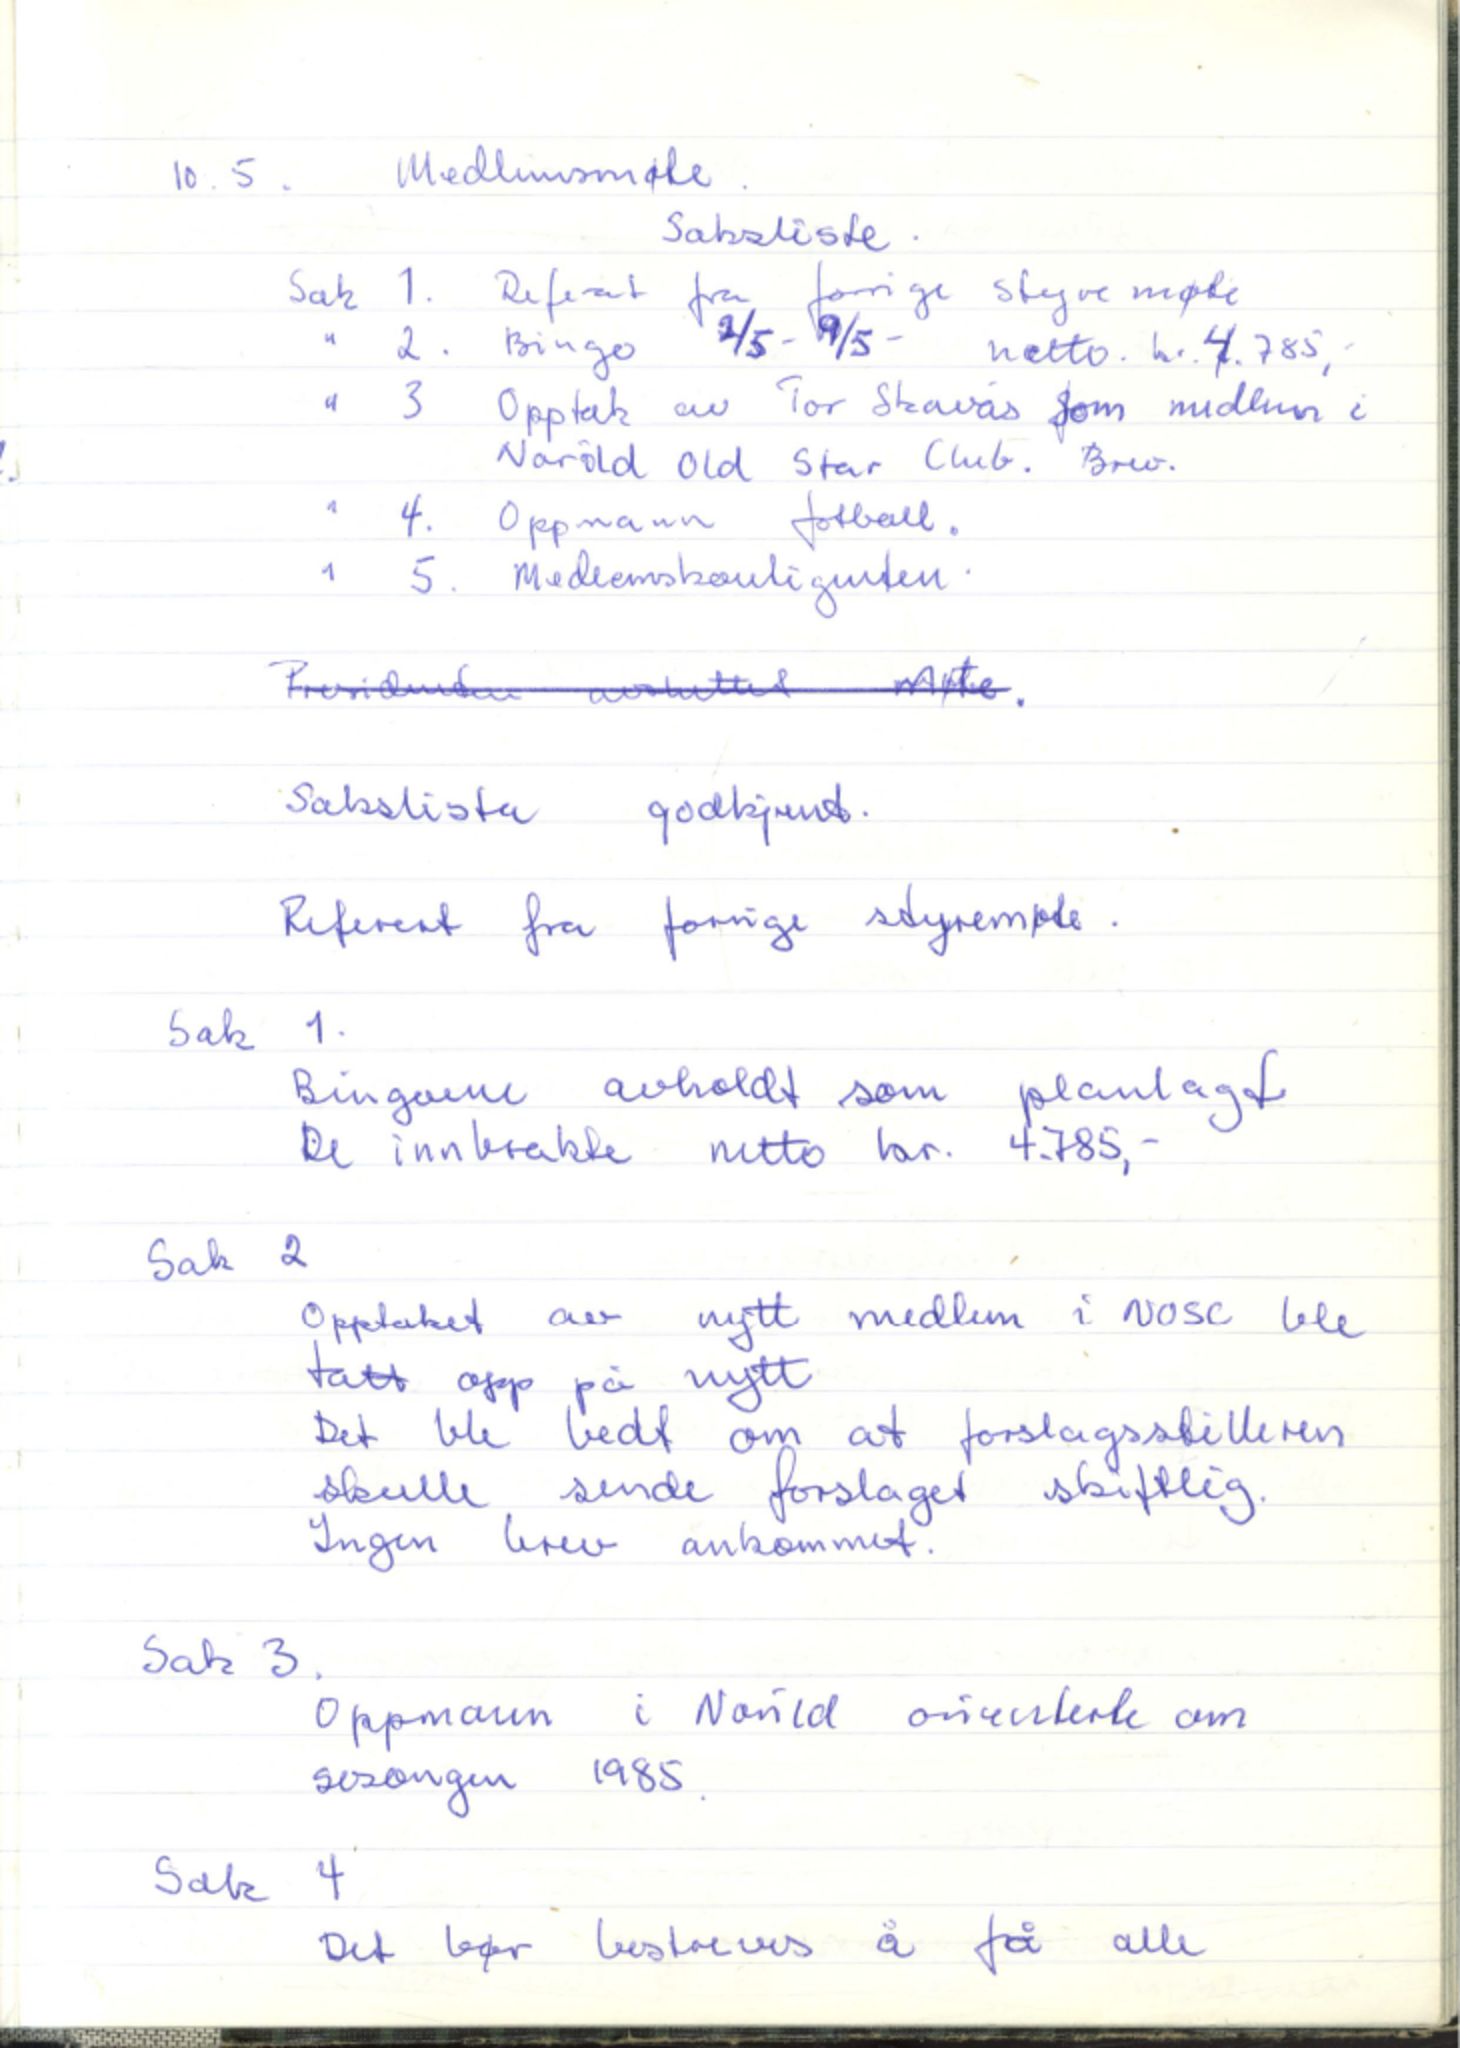 10.5. Medlemsmøte.
Saksliste.
Sak 1. Referat fra forrige styremøte
" 2. Bingo 2/5- 9/5- netto. kr. 4.785,-
" 3 Opptak av Tor Skavås som medlem i
Narild Old Star Club. Brev.
" 4. Oppmann fotball.
" 5. Medlemskontigenten.
Presidenten avsluttet møte.
Sakslista godkjent.
Referat fra forrige styremøte.
Sak 1.
Bingoene avholdt som planlagt
De innbrakte netto kr. 4.785,-
Sak 2
Opptaket av nytt medlem i NOSC ble
tatt opp på nytt
Det ble bedt om at forslagsstilleren
skulle sende forslaget skiftlig.
Ingen brev ankommet.
Sak 3.
Oppmann i Narild orienterte om
sesongen 1985.
Sak 4
Det bør bestreves å få alle